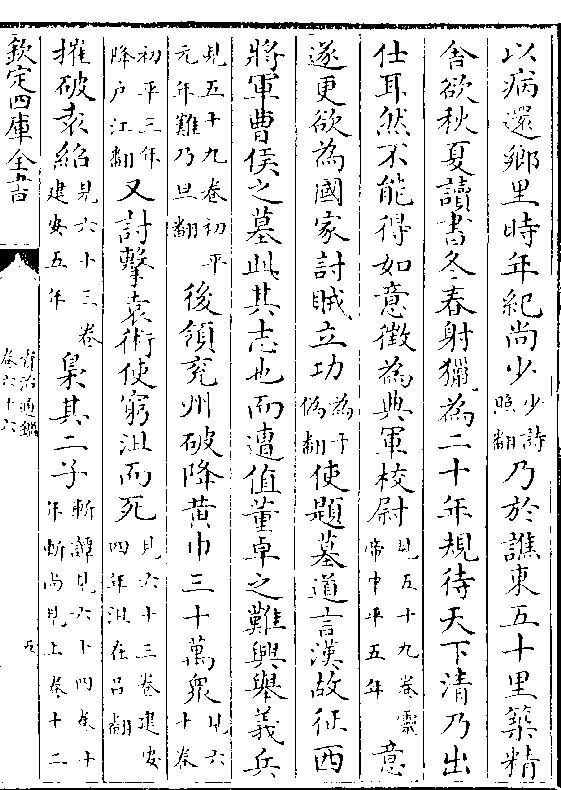 以病還鄉里時年紀尚少少詩照翻乃於譙東五十里築精
舍欲秋夏讀書冬春射獵為二十年規待天下清乃出
仕耳然不能得如意徵為典軍校尉見五十九卷靈帝中平五年意
遂更欲為國家討賊立功為于偽翻使題墓道言漢故征西
將軍曹侯之墓此其志也而遭值董卓之難興舉義兵
見五十九卷初平元年難乃旦翻後領兗州破降黃巾三十萬衆見六十卷
初平三年降户江翻又討擊袁術使窮沮而死見六十三卷建安四年沮在呂翻
摧破袁紹見六十三卷建安五年梟其二子斬譚見六十四卷十年斬尚見上卷十二
欽定四庫全書
資治通鑑
卷六十六
五